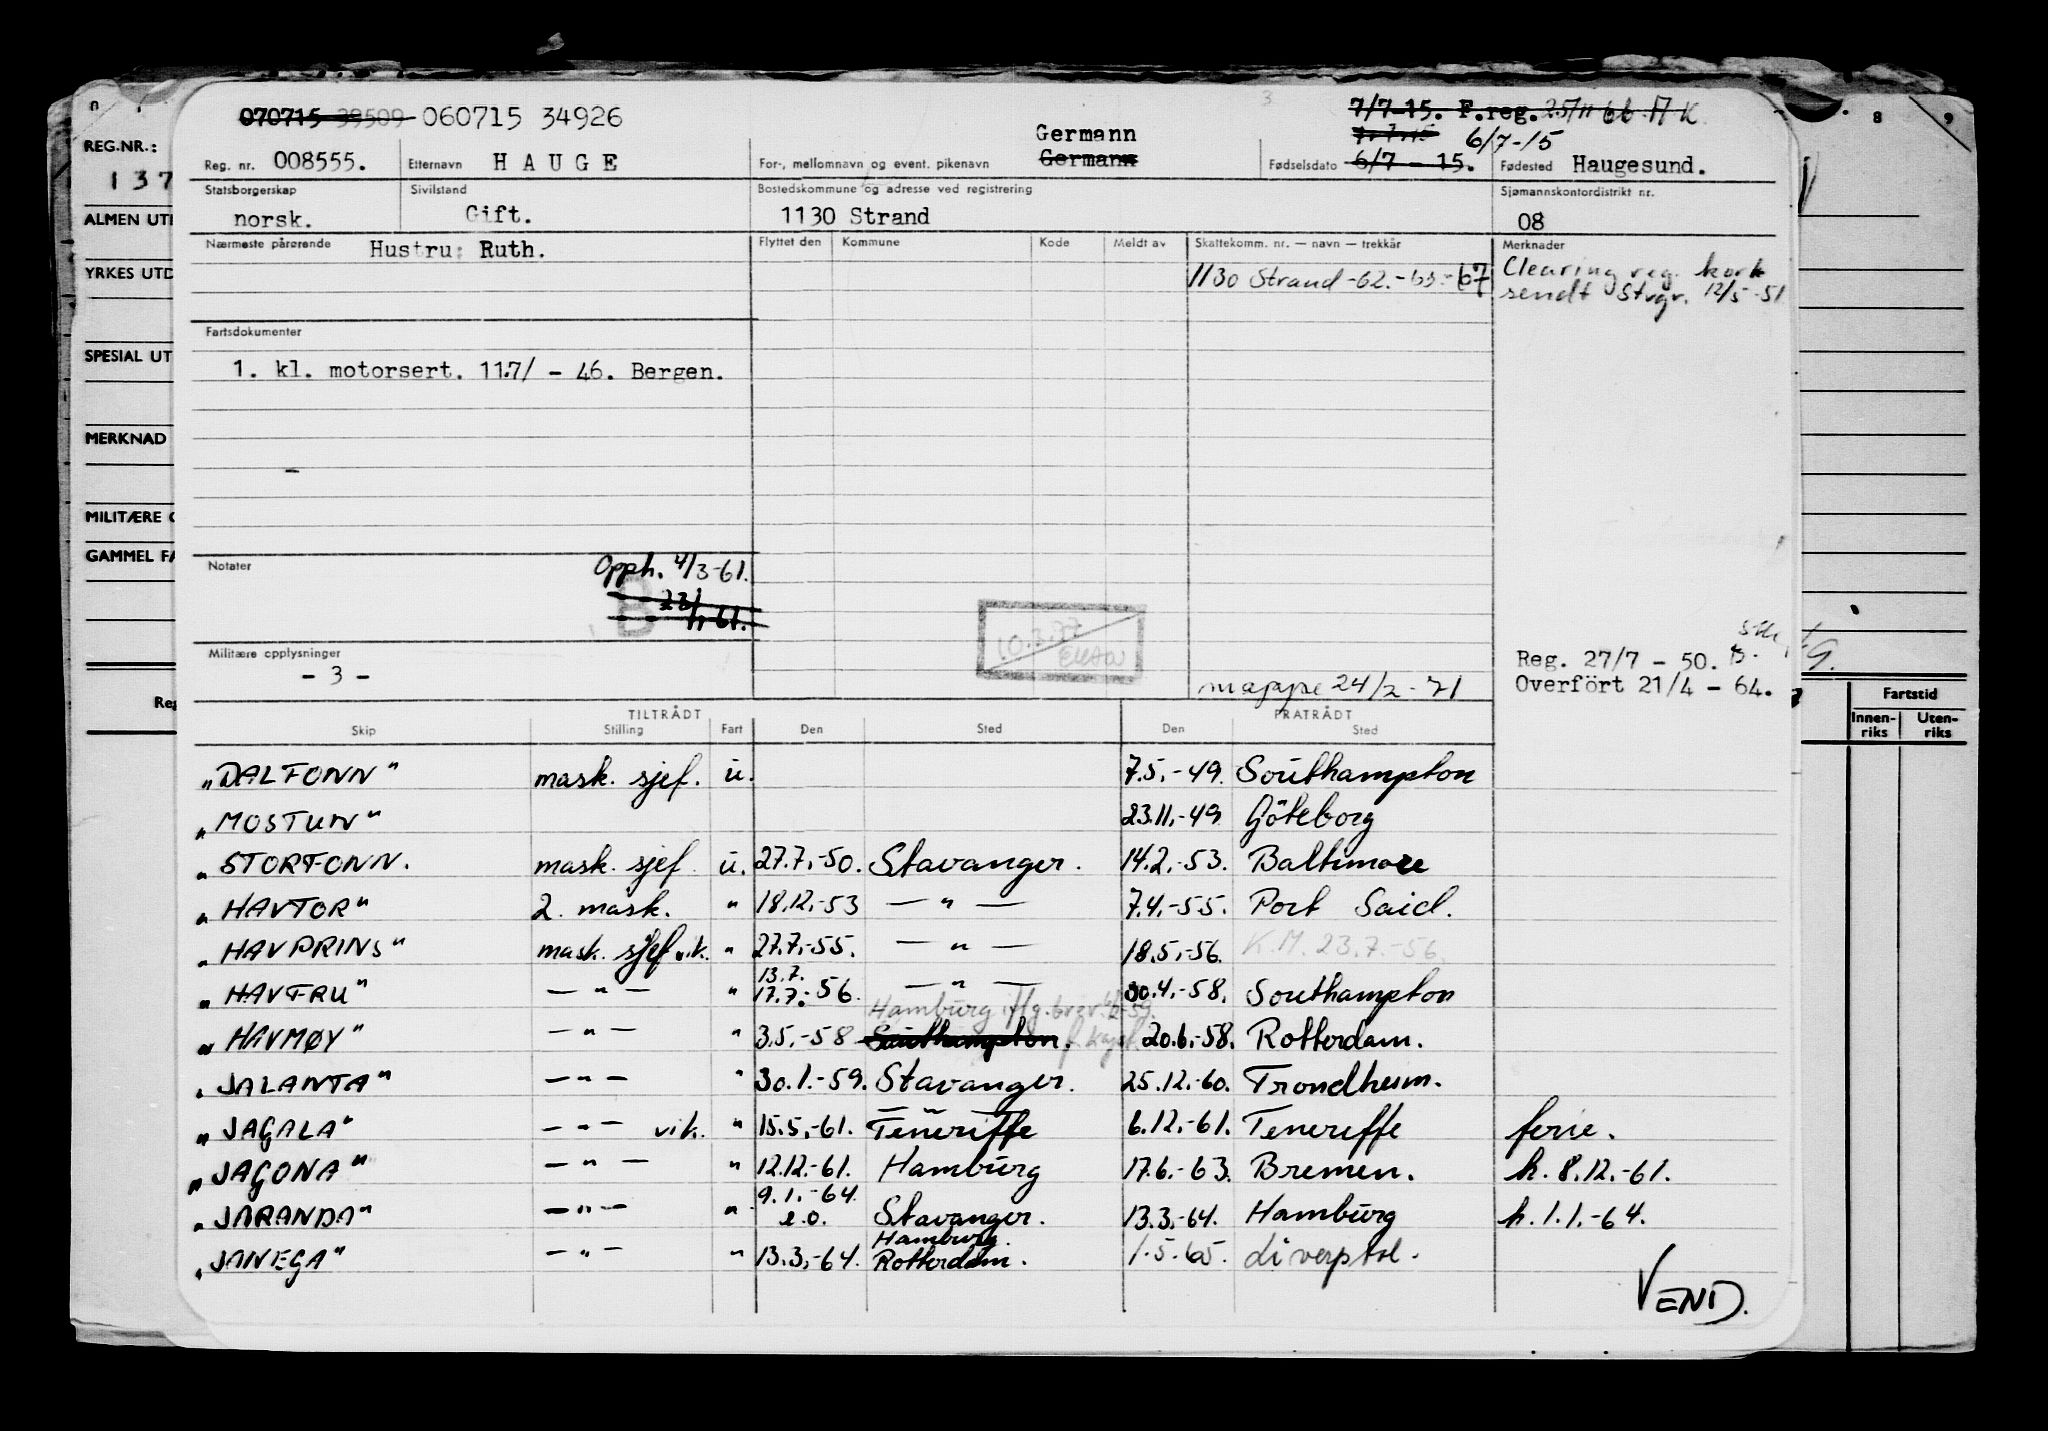 070715 060715 34926
7/7-15. F.reg. 25/11 66
Germann
6/7-15
REG.NR.:
137
Reg. nr. 008555. Etternavn HAUGE For-, mellomnavn og event. pikenavn Germann Fødselsdato 6/7 - 15. Fødested Haugesund.
Statsborgerskap Sivilstand Bostedskommune og adresse ved registrering Sjømannskontordistrikt nr.
norsk. Gift. 1130 Strand 08
ALMEN UT
Nærmeste pårørende Hustru: Ruth. Flyttet den Kommune Kode Meldt av Skattekomm. nr. — navn — trekkår Merknader
YRKES UTD
1130 Strand -62.-63.-67 Clearing reg. kort
sendt Stvgr. 12/5-51
Fartsdokumenter
SPESIAL UT
1. kl. motorsert. 11.7/ - 46. Bergen.
MERKNAD
MILITÆRE
GAMMEL FA
Notater Opph. 4/3-61.
B 23/1-61.
10.3.77
Militære opplysninger
- 3 -
Reg. 27/7 - 50.
mappe 24/2-71 Overfört 21/4 - 64.
Reg
Fartstid
Innen-riks Uten-riks
TILTRÅDT FRATRÅDT
Skip Stilling Fart Den Sted Den Sted
"DALFONN" mask. sjef. u. 7.5.-49. Southampton
"MOSTUN" 23.11.-49 Göteborg
"STORFONN. mask. sjef u. 27.7.-50. Stavanger. 14.2.-53. Baltimore
"HAVTOR" 2. mask. " 18.12.-53 — " — 7.4.-55. Port Said.
"HAVPRINS" mask. sjef vik. " 27.7.-55. — " — 18.5.-56. K.M. 23.7.-56.
13.7.
"HAVFRU" — " — " 17.7.-56. — " — 30.4.-58. Southampton
Hamburg iflg. brev
"HAVMØY" — " — " 3.5.-58 Southampton. 20.6.-58. Rotterdam.
"JALANTA" — " — " 30.1.-59. Stavanger. 25.12.-60. Trondheim.
"JAGALA" — " — vik. " 15.5.-61. Teneriffe 6.12.-61. Teneriffe ferie.
"JAGONA" — " — " 12.12.-61. Hamburg 17.6.-63. Bremen. h. 8.12.-61.
9.1.-64.
"JARANDA" — " — " e.o. Stavanger. 13.3.-64. Hamburg h. 1.1.-64.
Hamburg.
"JANEGA" — " — " 13.3.-64. Rotterdam. 1.5.65. Liverpool.
VEND.